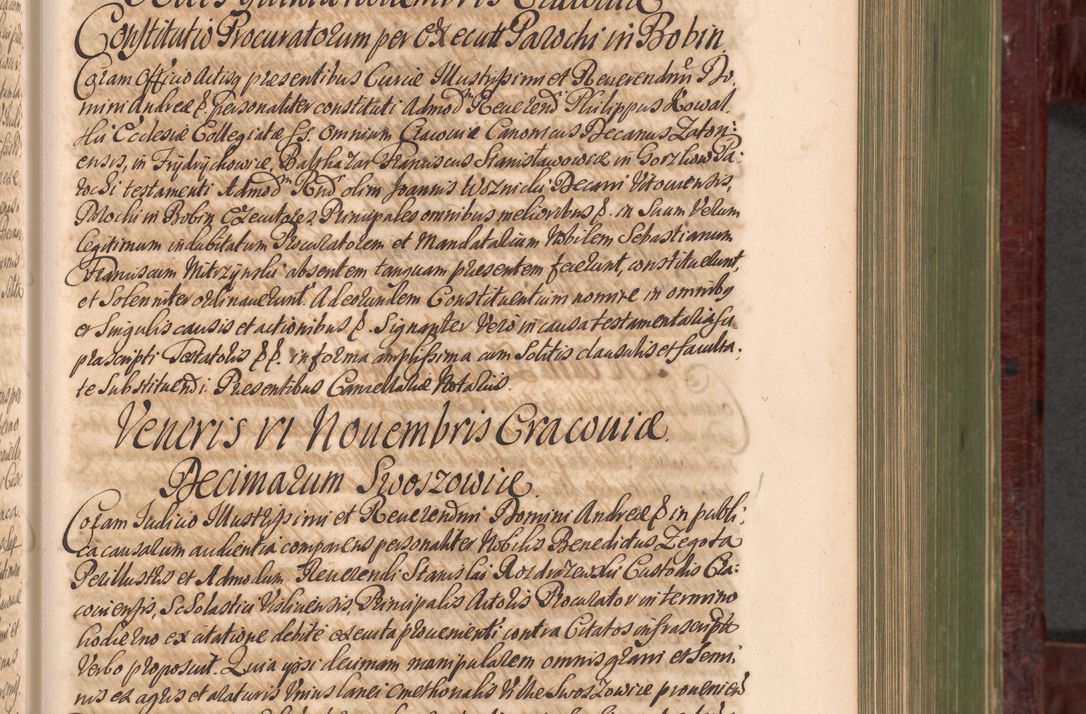 Constitutio Procuratorum per Execut Parochi in Bobin
Coram Officio Actisq presentibus Curiæ Illustrissimi et Reverendmi Do
mini Andreæ &. Personaliter constituti Admodm Reverendi Philippus Kowal
Ecclesiæ Collegiatæ SS Omnium Cracoviæ Canonicus Decanus Zator:
ensis, in Frydrychowice Balthazar Franciscus Stanisławowicz in Gorzkow Pa:
rochi testamenti Admodm Rndi olim Joannis Woznicki Decani Vitoviensis,
Parochi in Bobin Executores Principales omnibus melioribus &. in Suum Verum
legitimum indubitatum Procuratorem et Mandatarium Nobilem Sebastianum
Franciscum Mitrzynski absentem tanquam presentem fecerunt, constituerunt,
et Solenniter ordinaverunt. Ad eorundem Constituentium nomine in omnibq
et Singulis causis et actionibus &. Signanter Vero in causa testamentaria
præscripti Testatoris &&. in forma amplissima cum Solitis clausulis et faculta:
te Substituendi. Presentibus Cancellariæ Notariis.
Veneris VI Novembris Cracoviæ.
Decimarum Swoszowice.
Coram Iudicio Illustrissimi et Reverendmi Domini Andreæ & in publi:
ca causarum audientia comparens personaliter Nobilis Benedictus Zegota
Perillustris et Admodum Reverendi Stanislai Rozdrazewski Custodis Cra:
coviensis, Scholastici Visliciensis, Principalis Actoris Procurator in termino
hodierno ex citatione debite executa provenienti contra Citatos infrascriptos
Verbo proposuit. Quia ipsi decimam manipularem omnis grani et Semi:
nis ex agris et araturis Unius lanei cmethonalis Villæ Swoszowice provenien